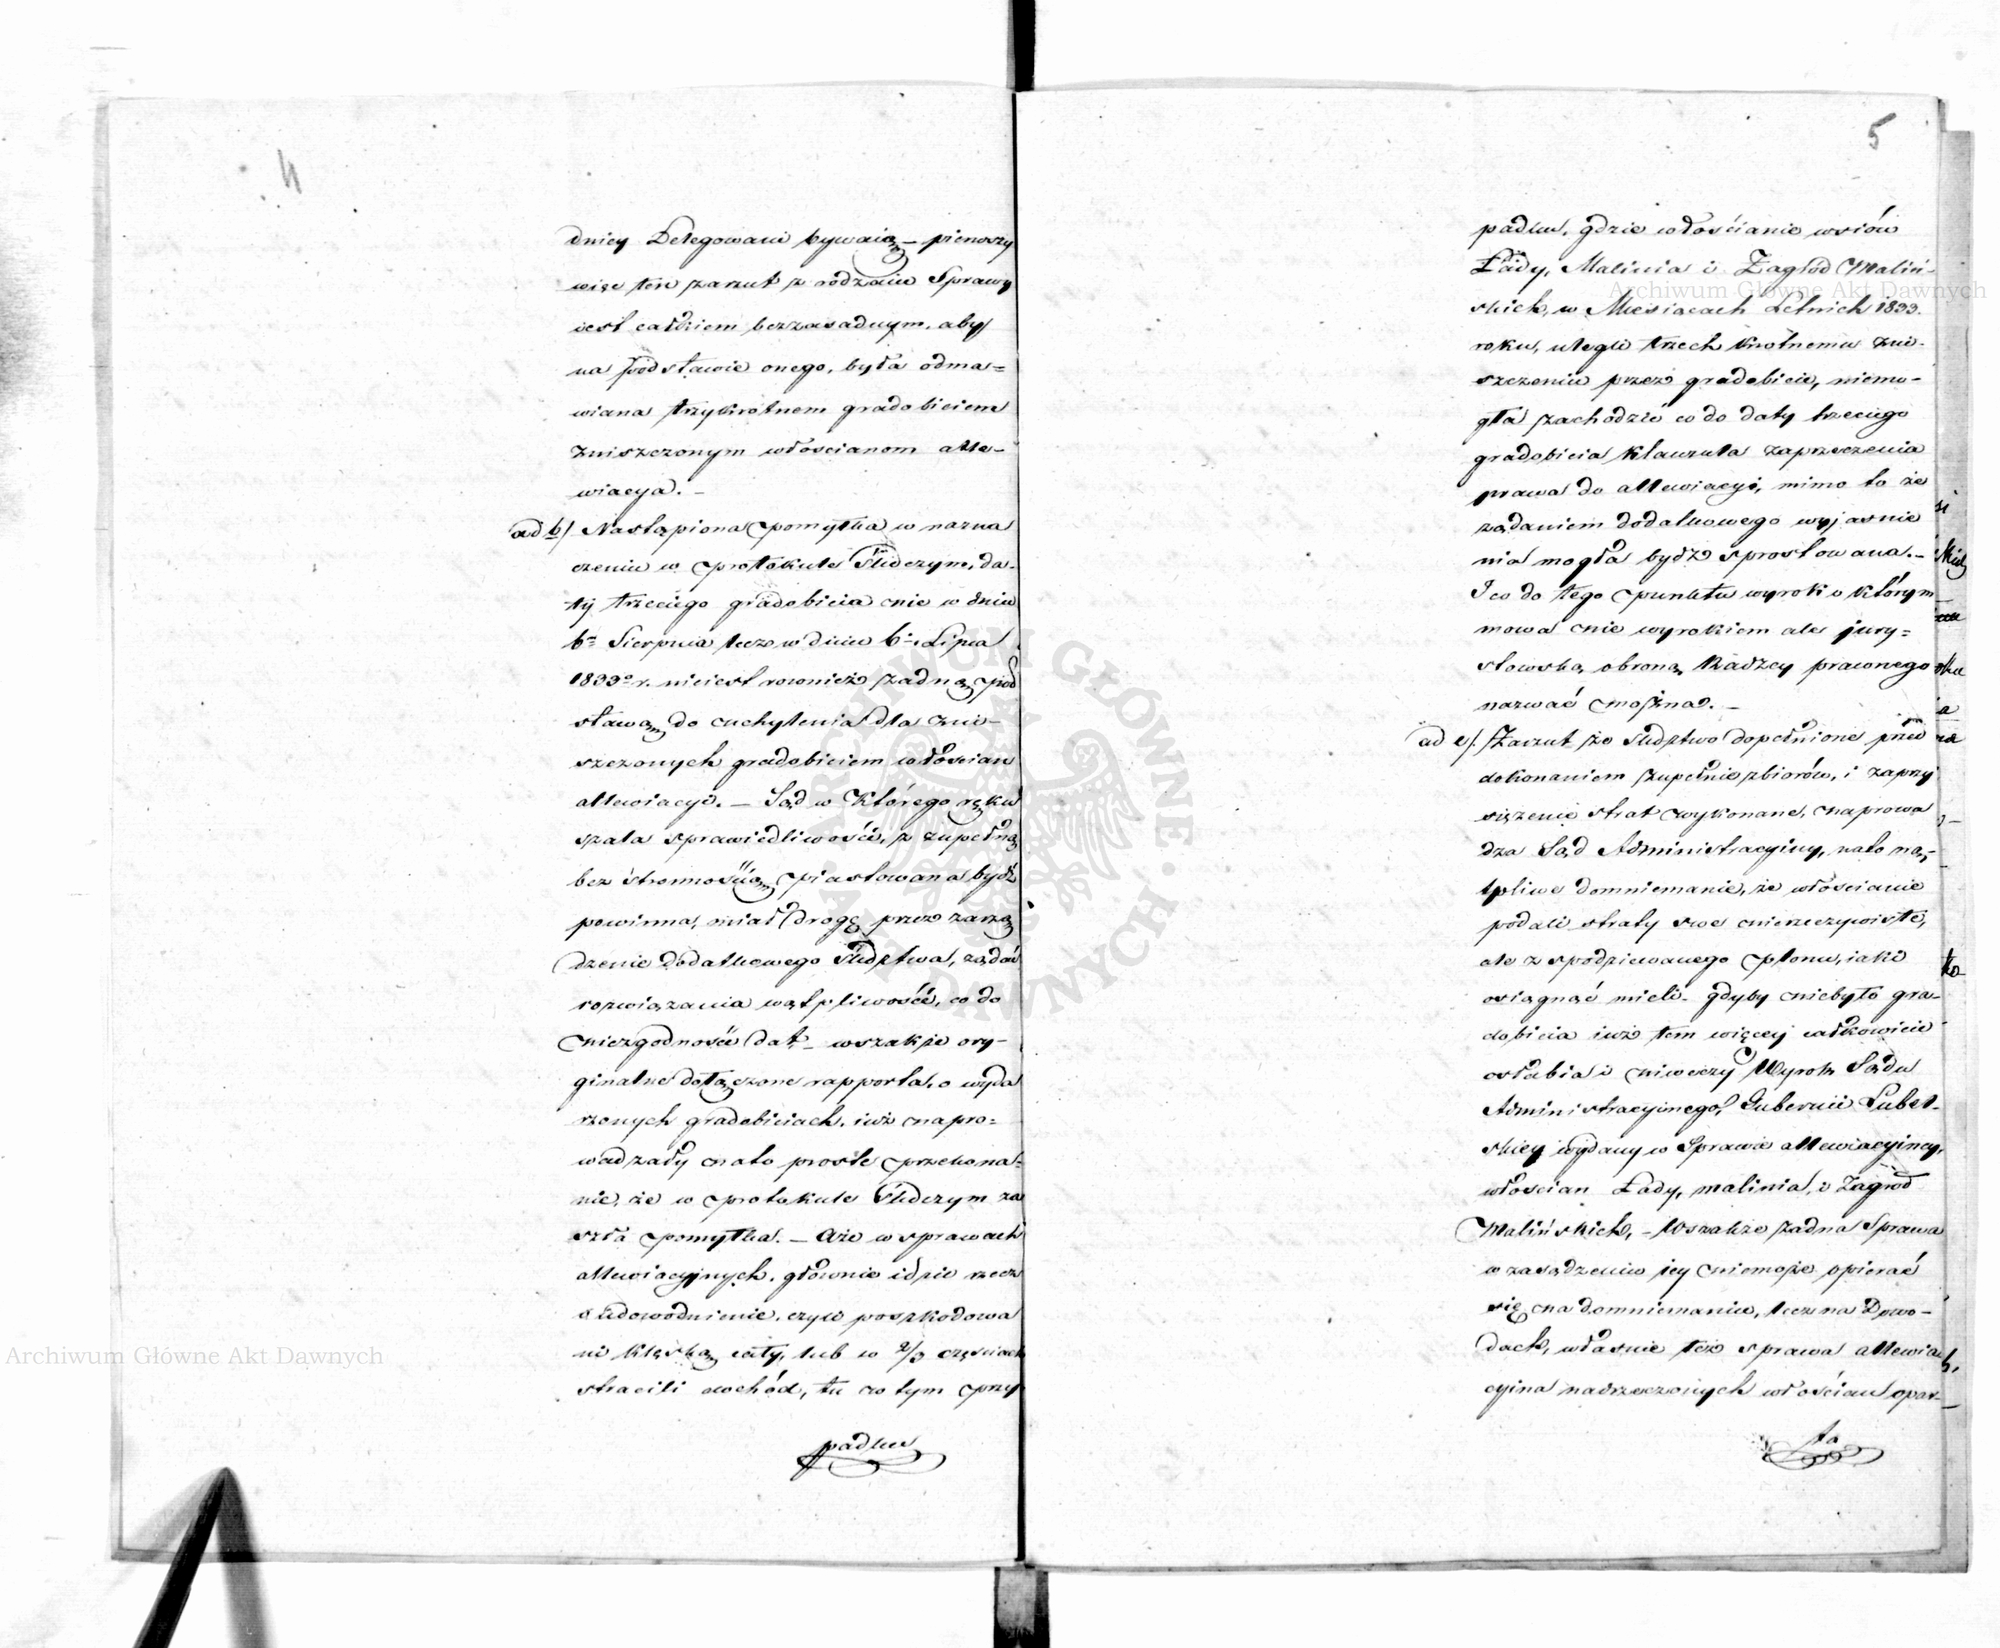 4
dniey Delegowani bywaią – pierwszy
więc ten zarzut z rodzaiu Sprawy
iest całkiem bezzasadnym, aby
na podstawie onego, była odma=
wiana trzykrotnem gradobiciem
zniszczonym włościanom alle-
wiacya. –
ad b/ Nastąpiona pomyłka w nazna
czeniu w protokule Śledczym, da-
ty trzeciego gradobicia nie w dniu
6º Sierpnia lecz w dniu 6º Lipca
1833º r. nieiest rownież żadną pod
stawą do uchylenia dla zni-
szczonych gradobiciem włościan
allewiacyi. – Sąd w którego ręku
szala sprawiedliwości, z zupełną
bezstronnością piastowana bydź
powinna, miał drogę przez zarzą
dzenie dodatkowego Śledztwa, żądać
rozwiązania wątpliwości, co do
niezgodności dat – wszakże ory-
ginalne dołączone rapporta, o wyda
rzonych gradobiciach, iuż napro=
wadzały na to proste przekona=
nie, że w protokule Śledczym za
szła pomyłka. – A że w sprawach
allewiacyjnych, głównie idzie rzecz
o udowodnienie, czyli poszkodowa
ni klęską cały, lub w 2/3 częściach
stracili dochód, tu w tym przy
padku
5
padku, gdzie włościanie wsiów
Łady, Malinia i Zagród Maliń-
skich, w Miesiącach Letnich 1833.
roku, ulegli trzechkrotnemu zni-
szczeniu przez gradobicie, niemo-
gła zachodzić co do daty trzeciego
gradobicia klauzula zaprzeczenia
prawa do allewiacyi, mimo to że
żądaniem dodatkowego wyjaśnie
nia mogła bydź sprostowana. –
I co do tego punktu wyrok o którym
mowa nie wyrokiem ale jury=
stowską obroną Radzcy prawnego
nazwać można. –
ad c/. Zarzut że śledztwo dopełnione przed
dokonaniem zupełnie zbiorów, i zaprzy
siężenie strat wykonane, naprowa
dza Sąd Administracyiny, na to wą-
tpliwe domniemanie, że włościanie
podali straty swe nierzeczywiste,
ale z spodziewanego plonu, iaki
osiągnąć mieli – gdyby niebyło gra-
dobicia iuż tem więcey całkowicie
osłabia i niweczy Wyrok Sądu
Administracyinego, Gubernii Lubel-
skiey wydany w Sprawie allewiacyiney,
włościan Łady, Malinia, i Zagród
Malińskich, – Wszakże żadna Sprawa
w zasądzeniu iey niemoże opierać
się na domniemaniu, lecz na Dowo-
dach, właśnie też sprawa allewia
cyina nadrzeczonych włościan opar-
ta
Archiwum Główne Akt Dawnych
Archiwum Główne Akt Dawnych
ARCHIWUM GŁÓWNE AKT DAWNYCH